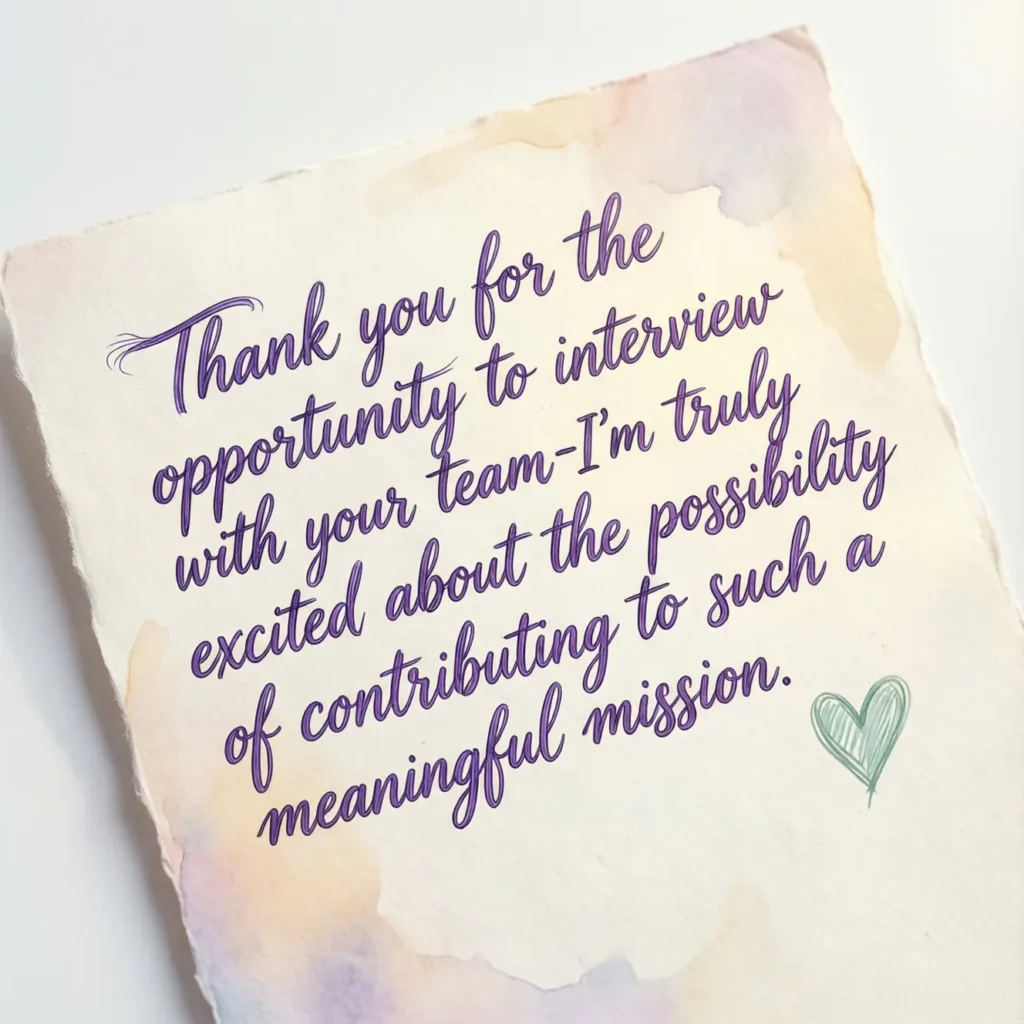 Thank you for the
opportunity to interview
with your team-I'm truly
excited about the possibility
of contributing to such a
meaningful mission.